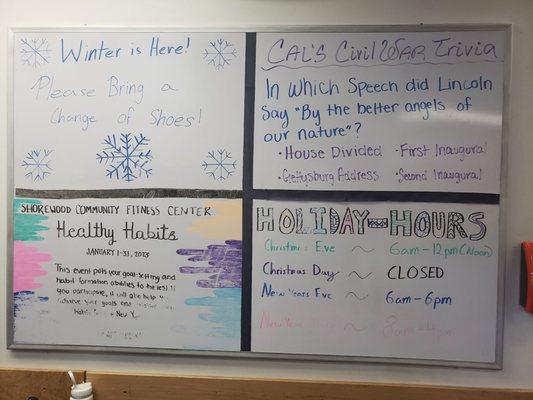 Winter is Here!
Please Bring a
Change of Shoes!
CAL'S Civil WAR Trivia
In Which Speech did Lincoln
Say "By the better angels of
our nature"?
• House Divided • First Inaugural
• Gettysburg Address • Second Inaugural
SHOREWOOD COMMUNITY FITNESS CENTER
Healthy Habits
JANUARY 1-31, 2023
This event puts your goal-setting and
habit formation abilities to the test! If
you participate, it will also help you
achieve your goals and
habit New Y
HOLIDAY HOURS
Christmas Eve ~ 6am-12pm (Noon)
Christmas Day ~ CLOSED
New Years Eve ~ 6am-6pm
New Year ~ 8am-4pm